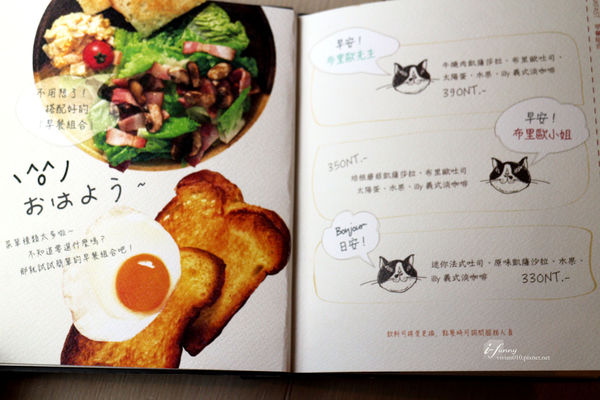 不用想了!
搭配好的
早餐組合
おはよう~
菜單種類太多啦~
不知道要選什麼嗎?
那就試試簡單的早餐組合吧!
早安!
布里歐先生
牛燒肉凱薩沙拉、布里歐吐司、
太陽蛋、水果、illy 義式淡咖啡
390NT.-
早安!
布里歐小姐
350NT.-
培根蘑菇凱薩沙拉、布里歐吐司
太陽蛋、水果、illy 義式淡咖啡
Bonjour
日安!
迷你法式吐司、原味凱薩沙拉、水果、
illy 義式淡咖啡 330NT.-
飲料可換愛更換, 點餐時可詢問服務人員
i-funny
vivian010.pixnet.net